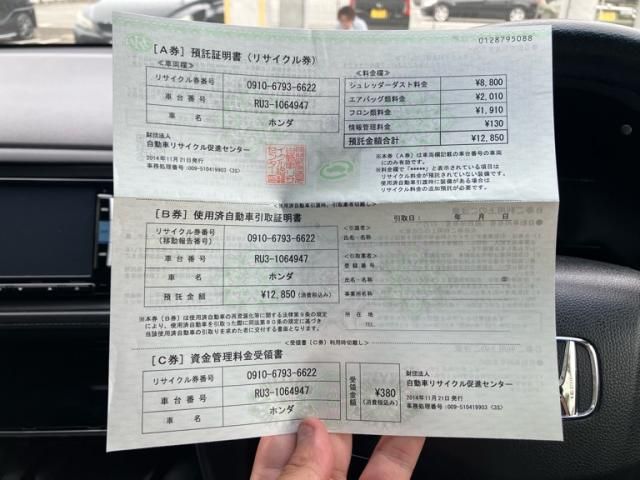 0128795088
[A券] 預託証明書(リサイクル券)
≪車両欄≫
リサイクル券番号 0910-6793-6622
車台番号 RU3-1064947
車名 ホンダ
≪料金欄≫
シュレッダーダスト料金 ¥8,800
エアバッグ類料金 ¥2,010
フロン類料金 ¥1,910
情報管理料金 ¥130
預託金額合計 ¥12,850
財団法人
自動車リサイクル促進センター
2014年11月21日発行
事務処理番号:009-510419903<2S>
※本券〔A券〕は車両欄記載の車台番号の車両
にのみ有効です。
※料金欄で「*****」と表示されている項目は
リサイクル料金が預託されていない装備です。
使用済自動車引渡時に装備がある場合は
リサイクル料金の追加預託が必要です。
[B券] 使用済自動車引取証明書
引取日: 年 月 日
リサイクル券番号
(移動報告番号) 0910-6793-6622
車台番号 RU3-1064947
車名 ホンダ
預託金額 ¥12,850(消費税込み)
<引渡者>
氏名・名称
<引取業者>
登録番号
氏名・名称
事業所名称
所在地
TEL.
※本券〔B券〕は使用済自動車の再資源化等に関する法律第9条の規定
により、使用済自動車を引取った際に同法第80条の規定に基づき
当該使用済自動車の引取りを求めた者に交付する書面となります。
<受領書〔C券〕利用時切離し>
[C券] 資金管理料金受領書
リサイクル券番号 0910-6793-6622
車台番号 RU3-1064947
車名 ホンダ
受領金額 ¥380
(消費税込み)
財団法人
自動車リサイクル促進センター
2014年11月21日発行
事務処理番号:009-510419903<2S>